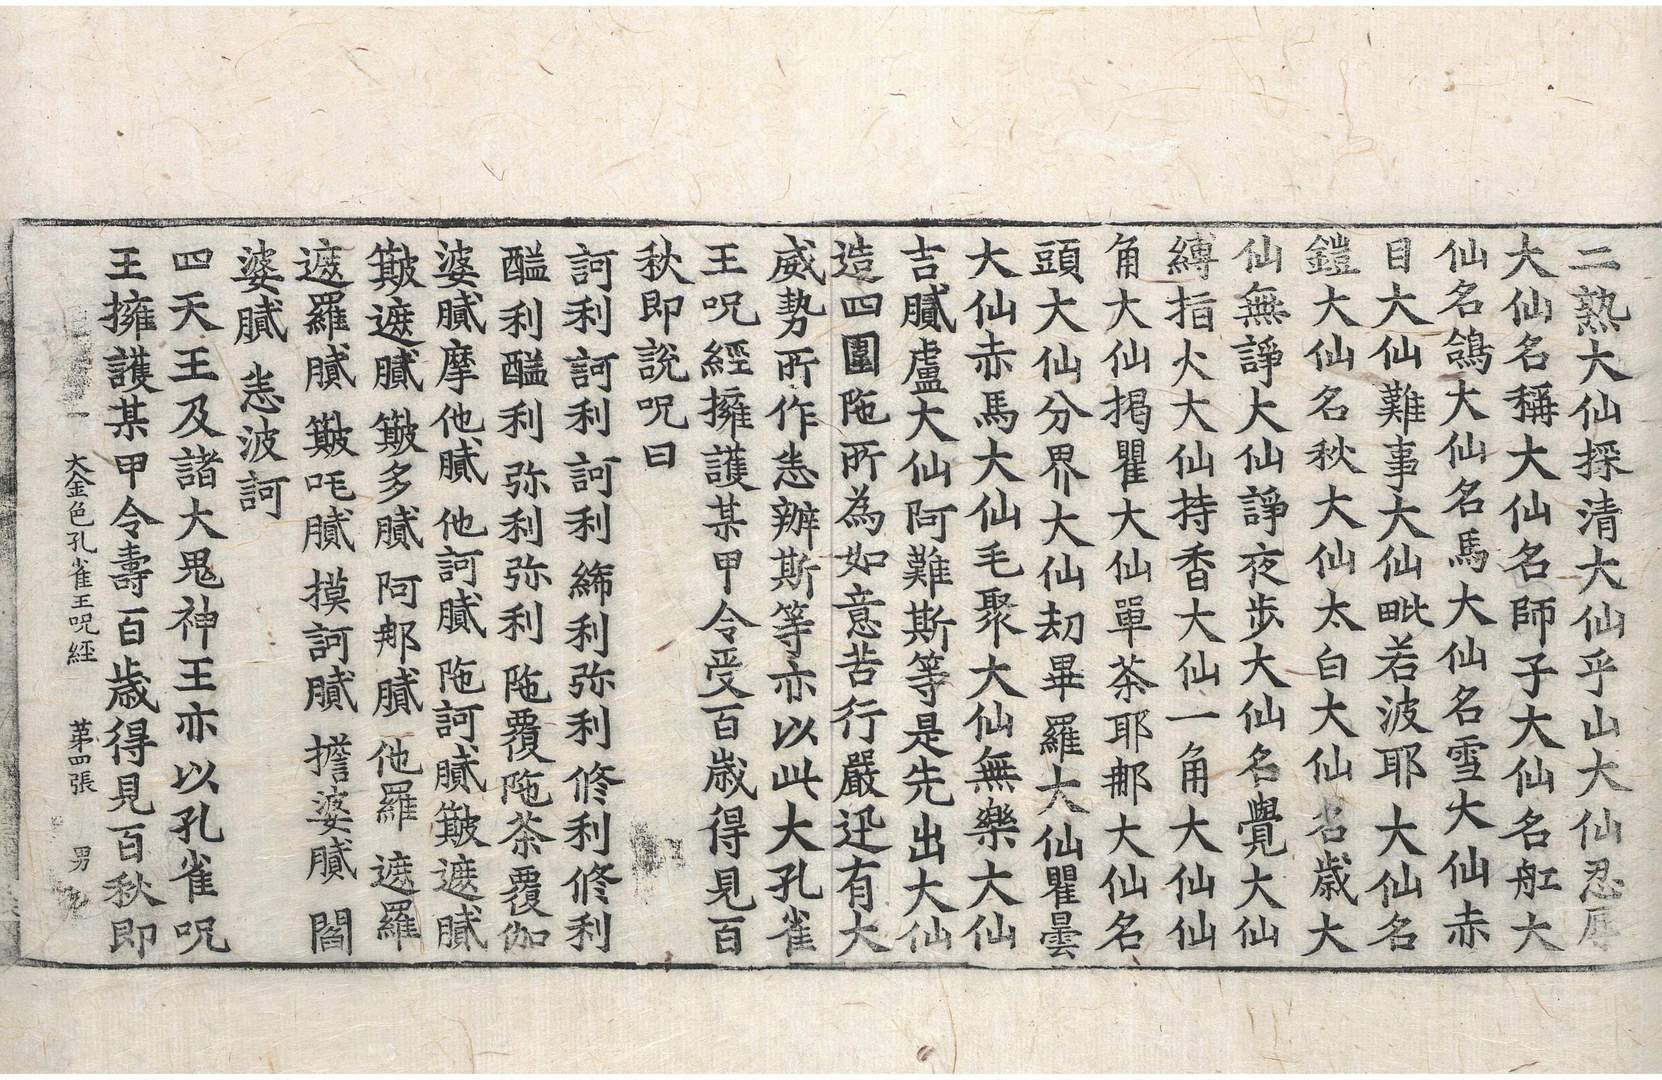 二熟大仙採清大仙乎山大仙忍辱
大仙名稱大仙名師子大仙名舡大
仙名鴿大仙名馬大仙名雪大仙赤
目大仙難事大仙毗若波耶大仙名
鎧大仙名秋大仙太白大仙名歲大
仙無諍大仙諍夜步大仙名覺大仙
縛指火大仙持香大仙一角大仙仙
角大仙揭瞿大仙單茶耶那大仙名
頭大仙分界大仙刧畢羅大仙瞿曇
大仙赤馬大仙毛聚大仙無樂大仙
吉膩盧大仙阿難斯等是先出大仙
造四圍陁所為如意苦行嚴迅有大
威勢所作恙辦斯等亦以此大孔雀
王呪經擁護某甲令受百歲得見百
秋即說呪曰
訶利 訶利 訶利 絺利弥利修利修利
醯利醯利 弥利弥利 陁覆陁茶覆伽
婆膩摩他膩 他訶膩 陁訶膩簸遮膩
簸遮膩簸多膩 阿那膩 他羅 遮羅
遮羅膩簸吒膩 摸訶膩 擔婆膩 閻
婆膩 恙波訶
四天王及諸大鬼神王亦以孔雀呪
王擁護某甲令壽百歲得見百秋即
大金色孔雀王呪經 第四張 男